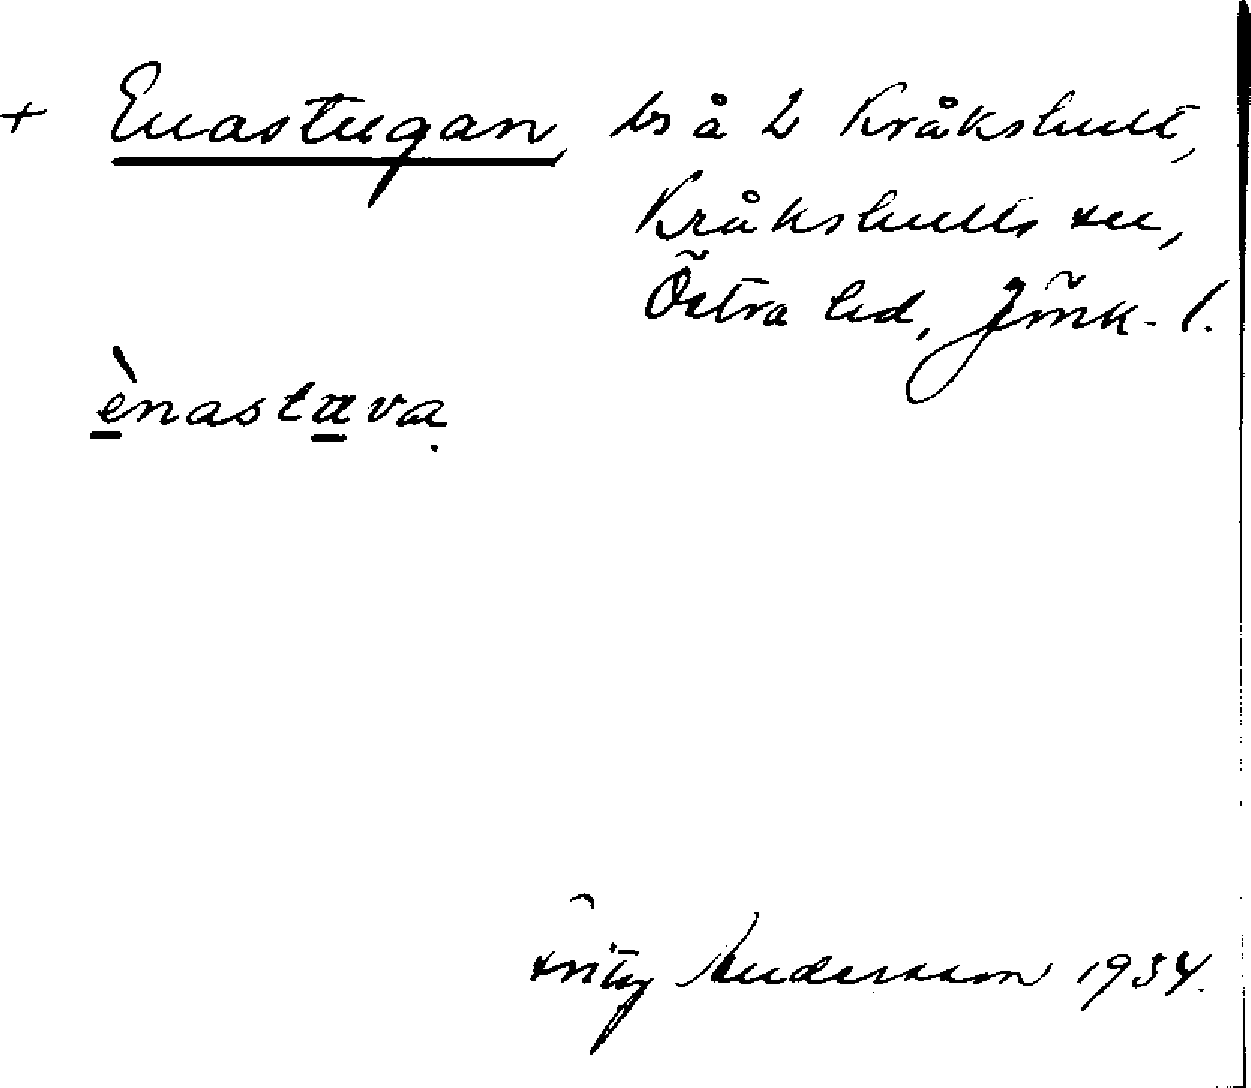 + Enastugan, bs å 2 Kråkshult,
Kråkshults sn,
Östra hd, Jönk. l.
ènastɷva
Fritz Andersson 1934.